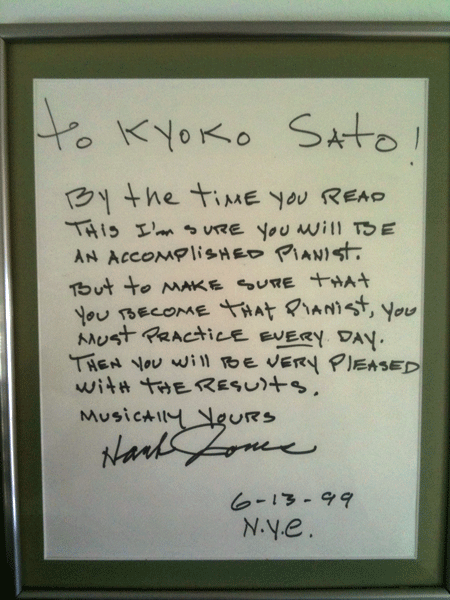 to KYOKO SATO!
BY the TIME YOU READ
THIS I'm SURE YOU WILL BE
AN ACCOMPLISHED PIANIST.
BUT to MAKE SURE THAT
YOU BECOME THAT PIANIST, YOU
MUST PRACTICE EVERY DAY.
THEN YOU WILL BE VERY PLEASED
WITH THE RESULTS.
MUSICALLY YOURS
Hank Jones
6-13-99
N.Y.C.